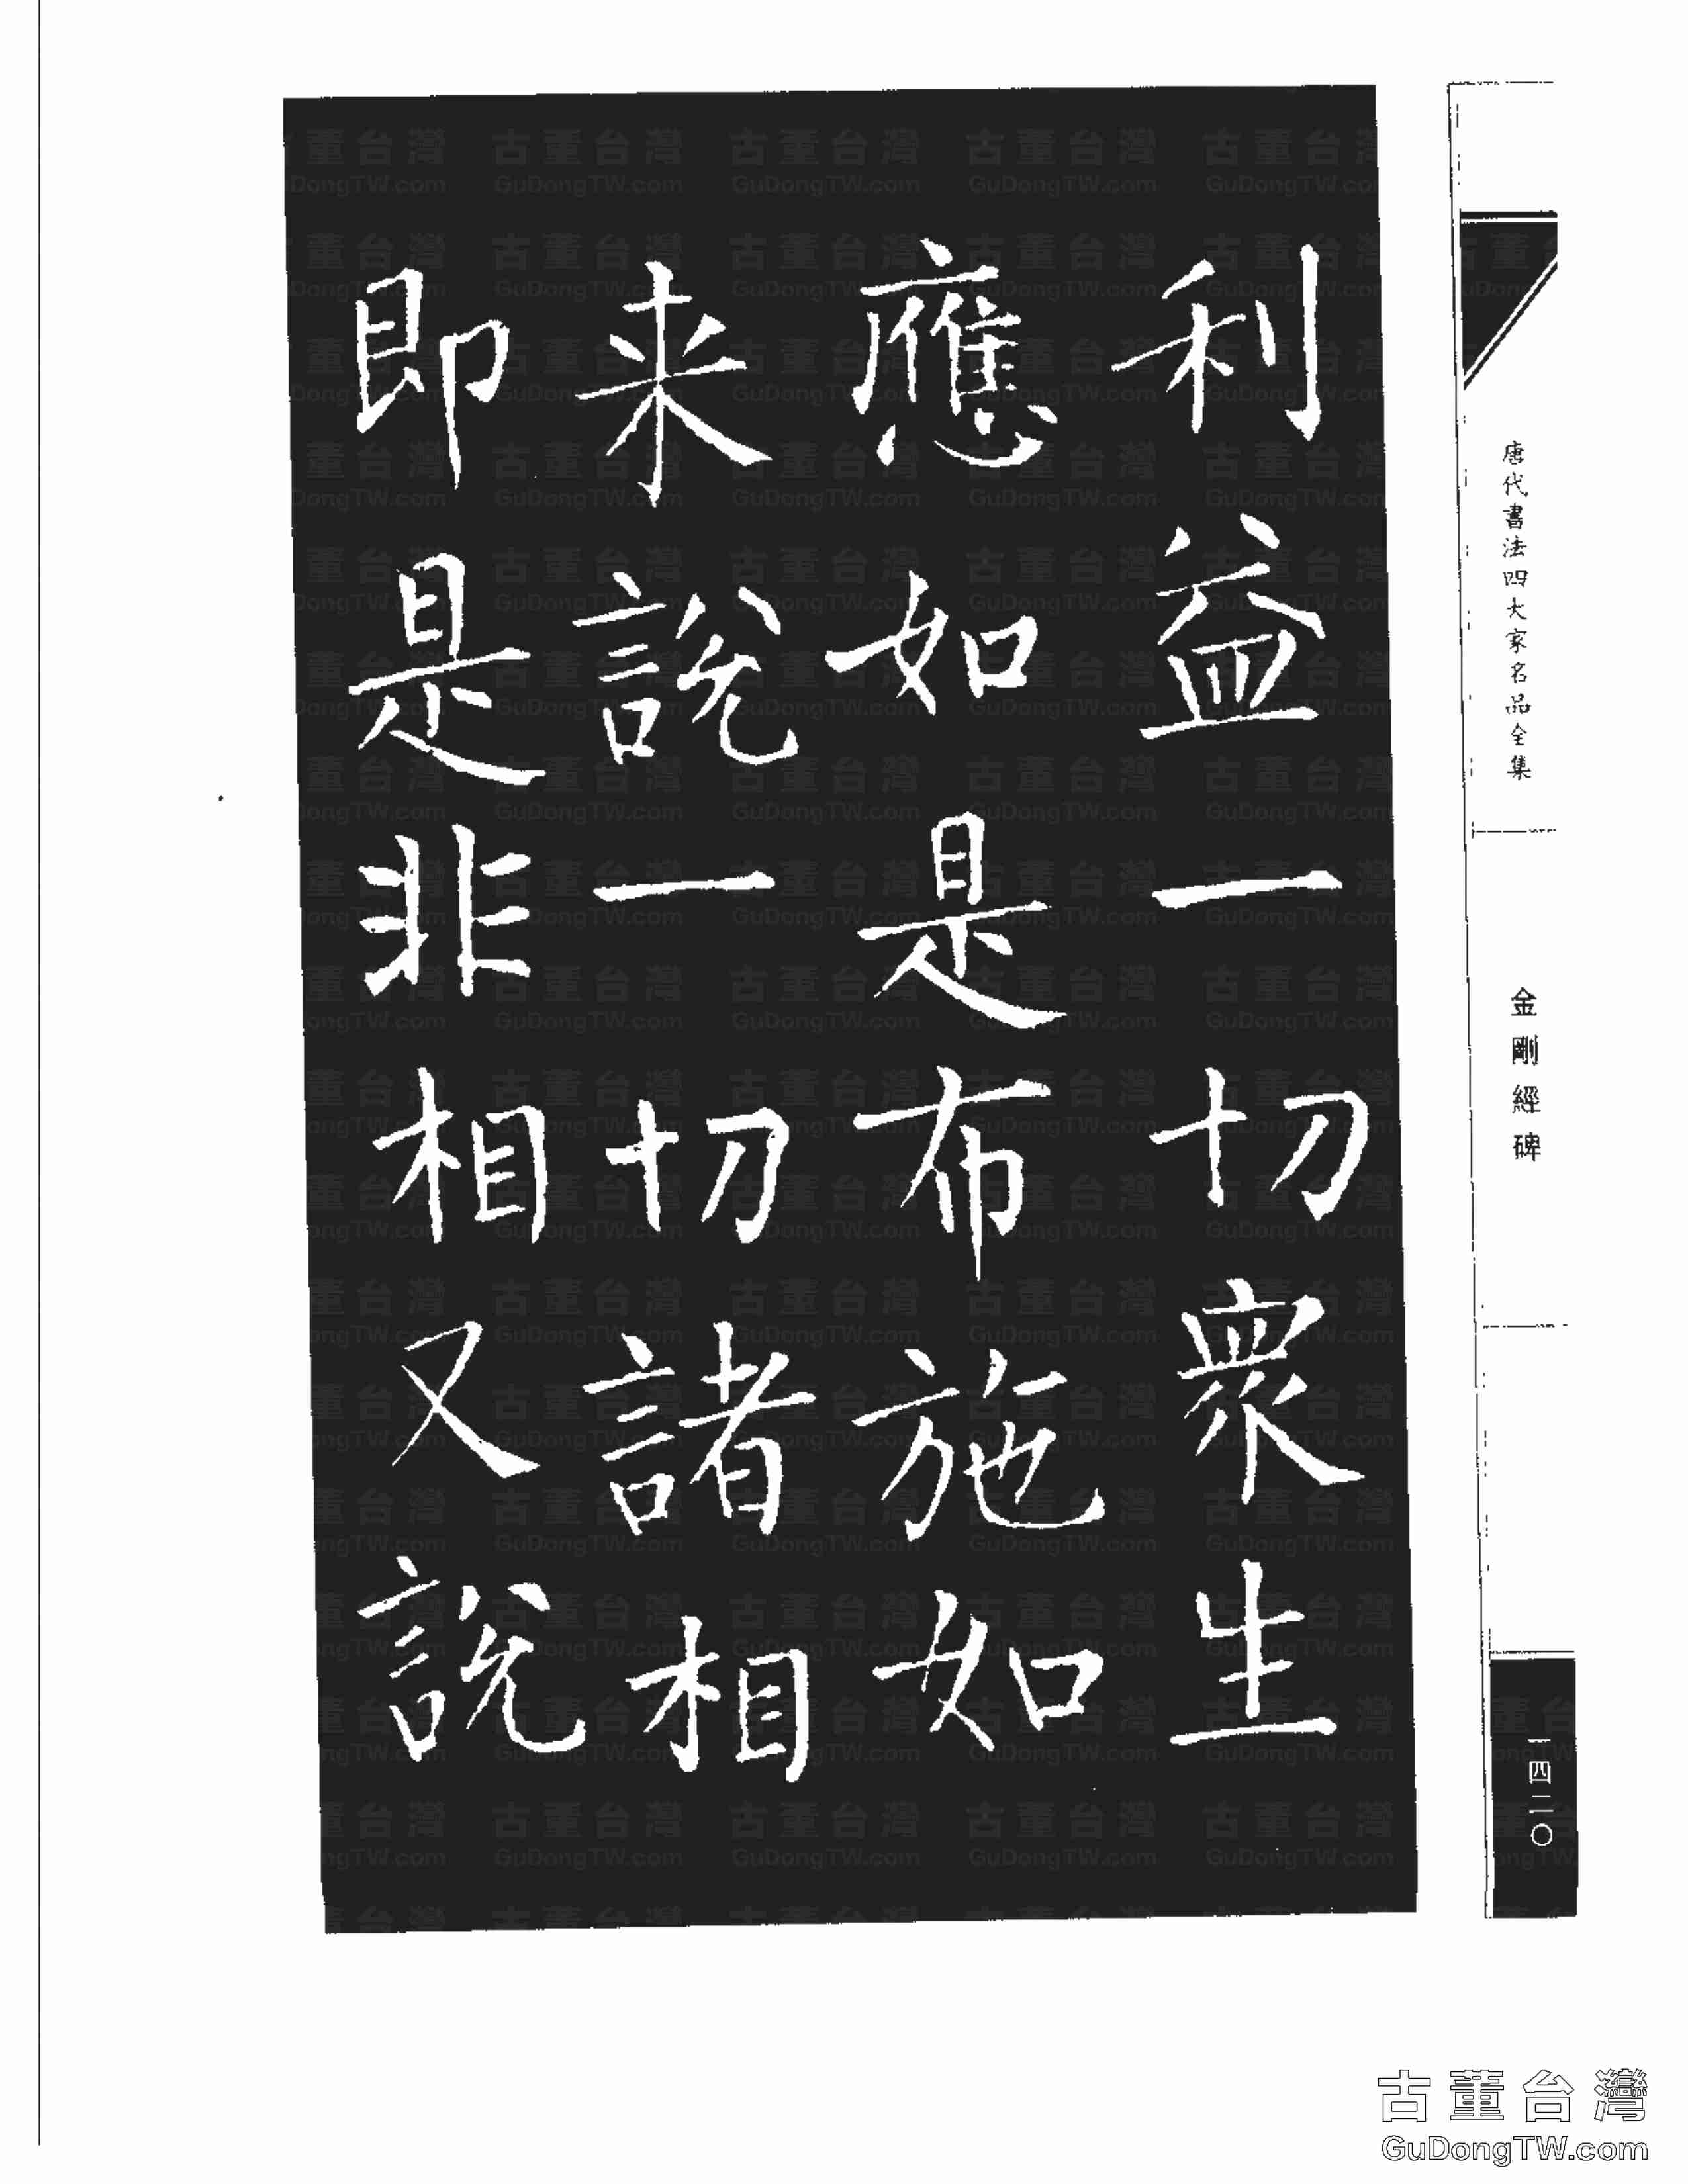 唐代書法四大家名品全集
金剛經碑
一四二〇
利益一切衆生
應如是布施如
来說一切諸相
即是非相又說
古董台灣
GuDongTW.com